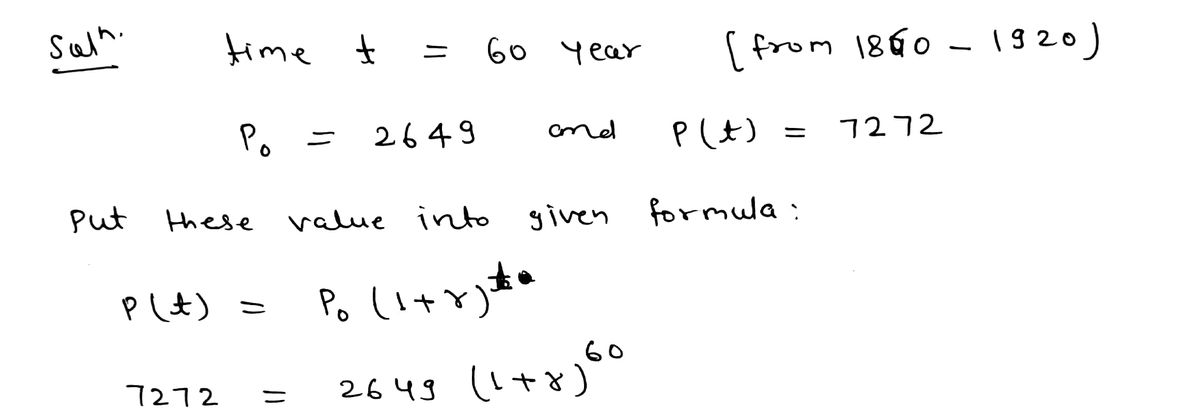 Solⁿ. time t = 60 year [from 1860 - 1920)
P₀ = 2649 and P(t) = 7272
Put these value into given formula:
P(t) = P₀ (1+r)ᵗ
7272 = 2649 (1+r)⁶⁰